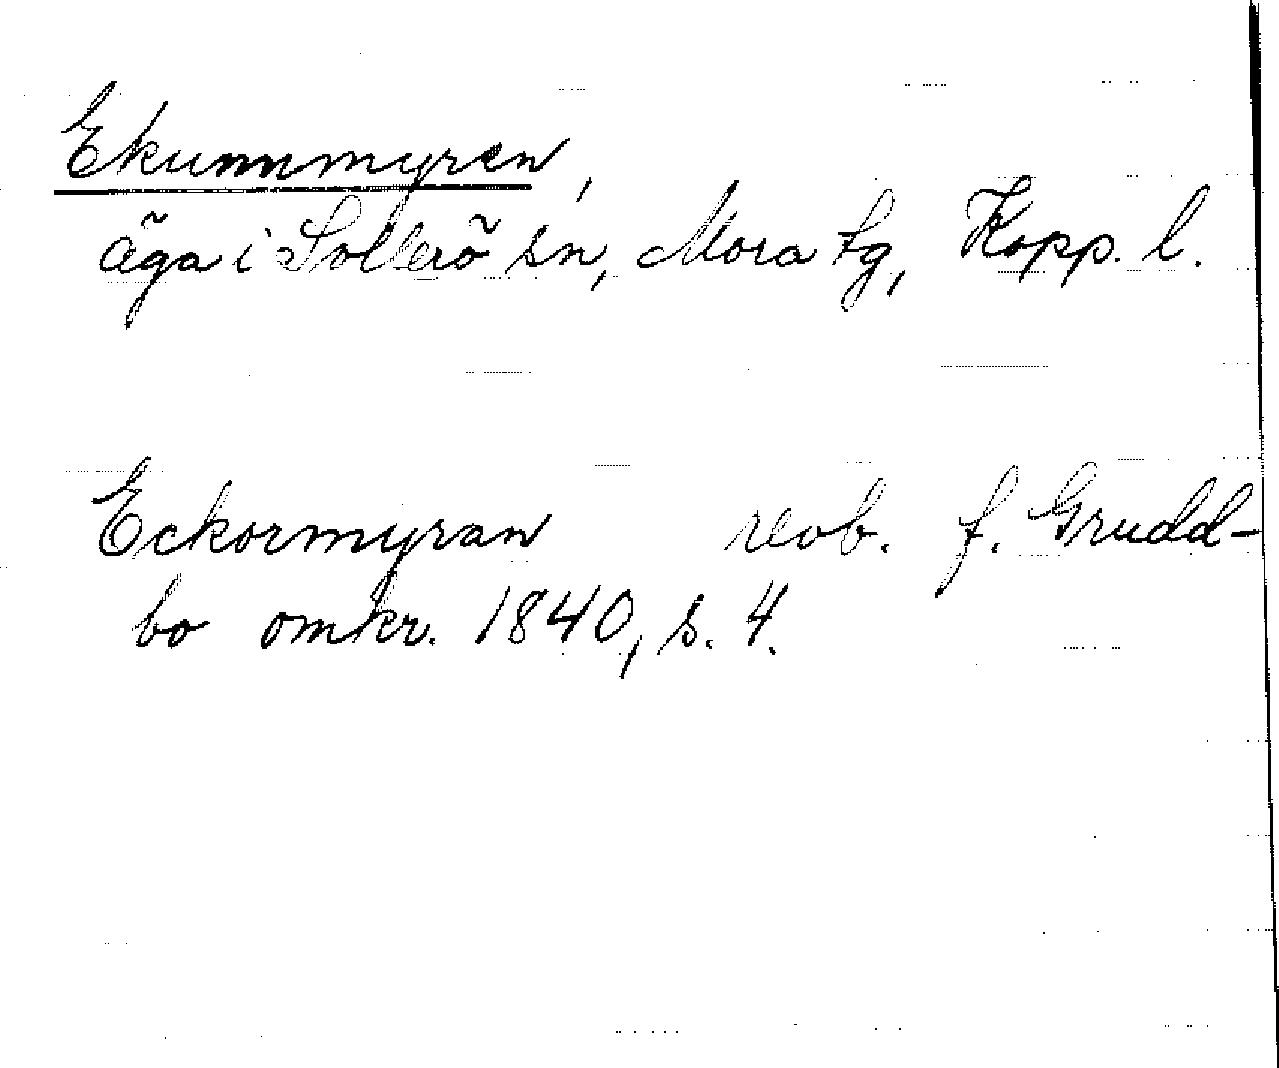 Ekunnmyren,
äga i Sollerö sn, Mora tg, Kopp. l.
Eckormyran reob. f. Grudd-
bo omkr. 1840, s. 4.